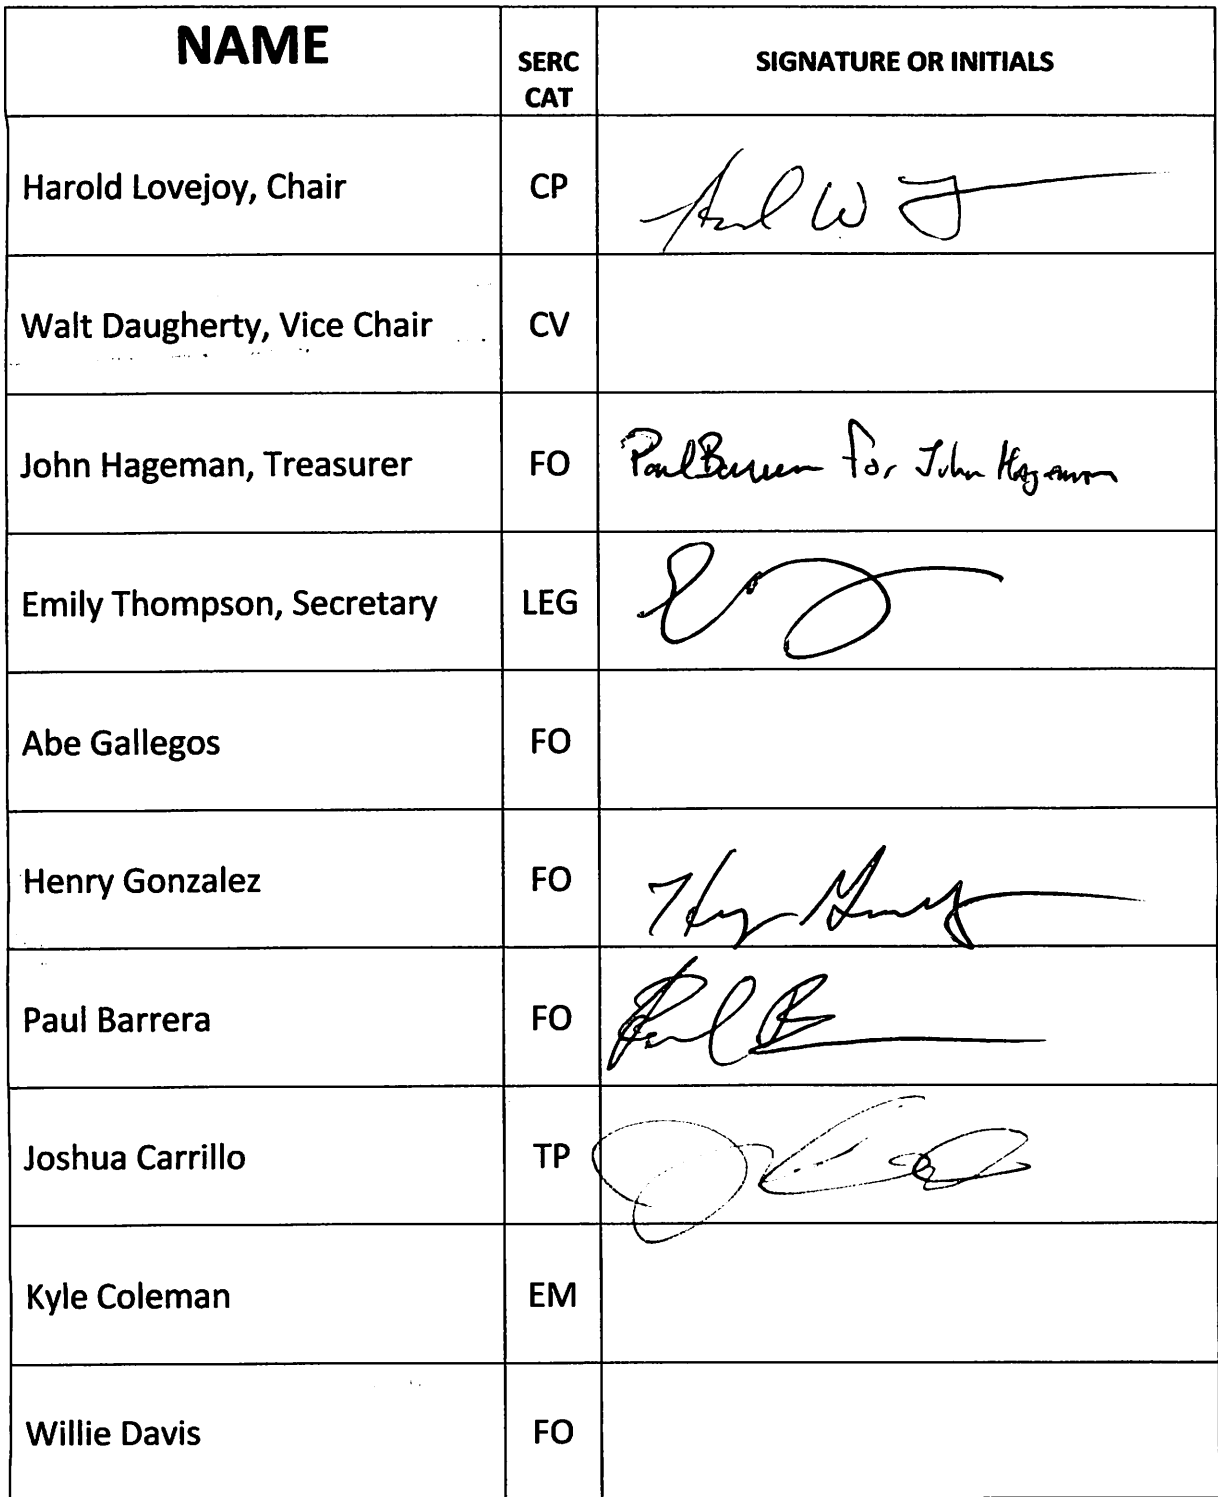 NAME
SERC CAT
SIGNATURE OR INITIALS
Harold Lovejoy, Chair CP
Walt Daugherty, Vice Chair CV
John Hageman, Treasurer FO Paul Barrera for John Hageman
Emily Thompson, Secretary LEG
Abe Gallegos FO
Henry Gonzalez FO
Paul Barrera FO
Joshua Carrillo TP
Kyle Coleman EM
Willie Davis FO